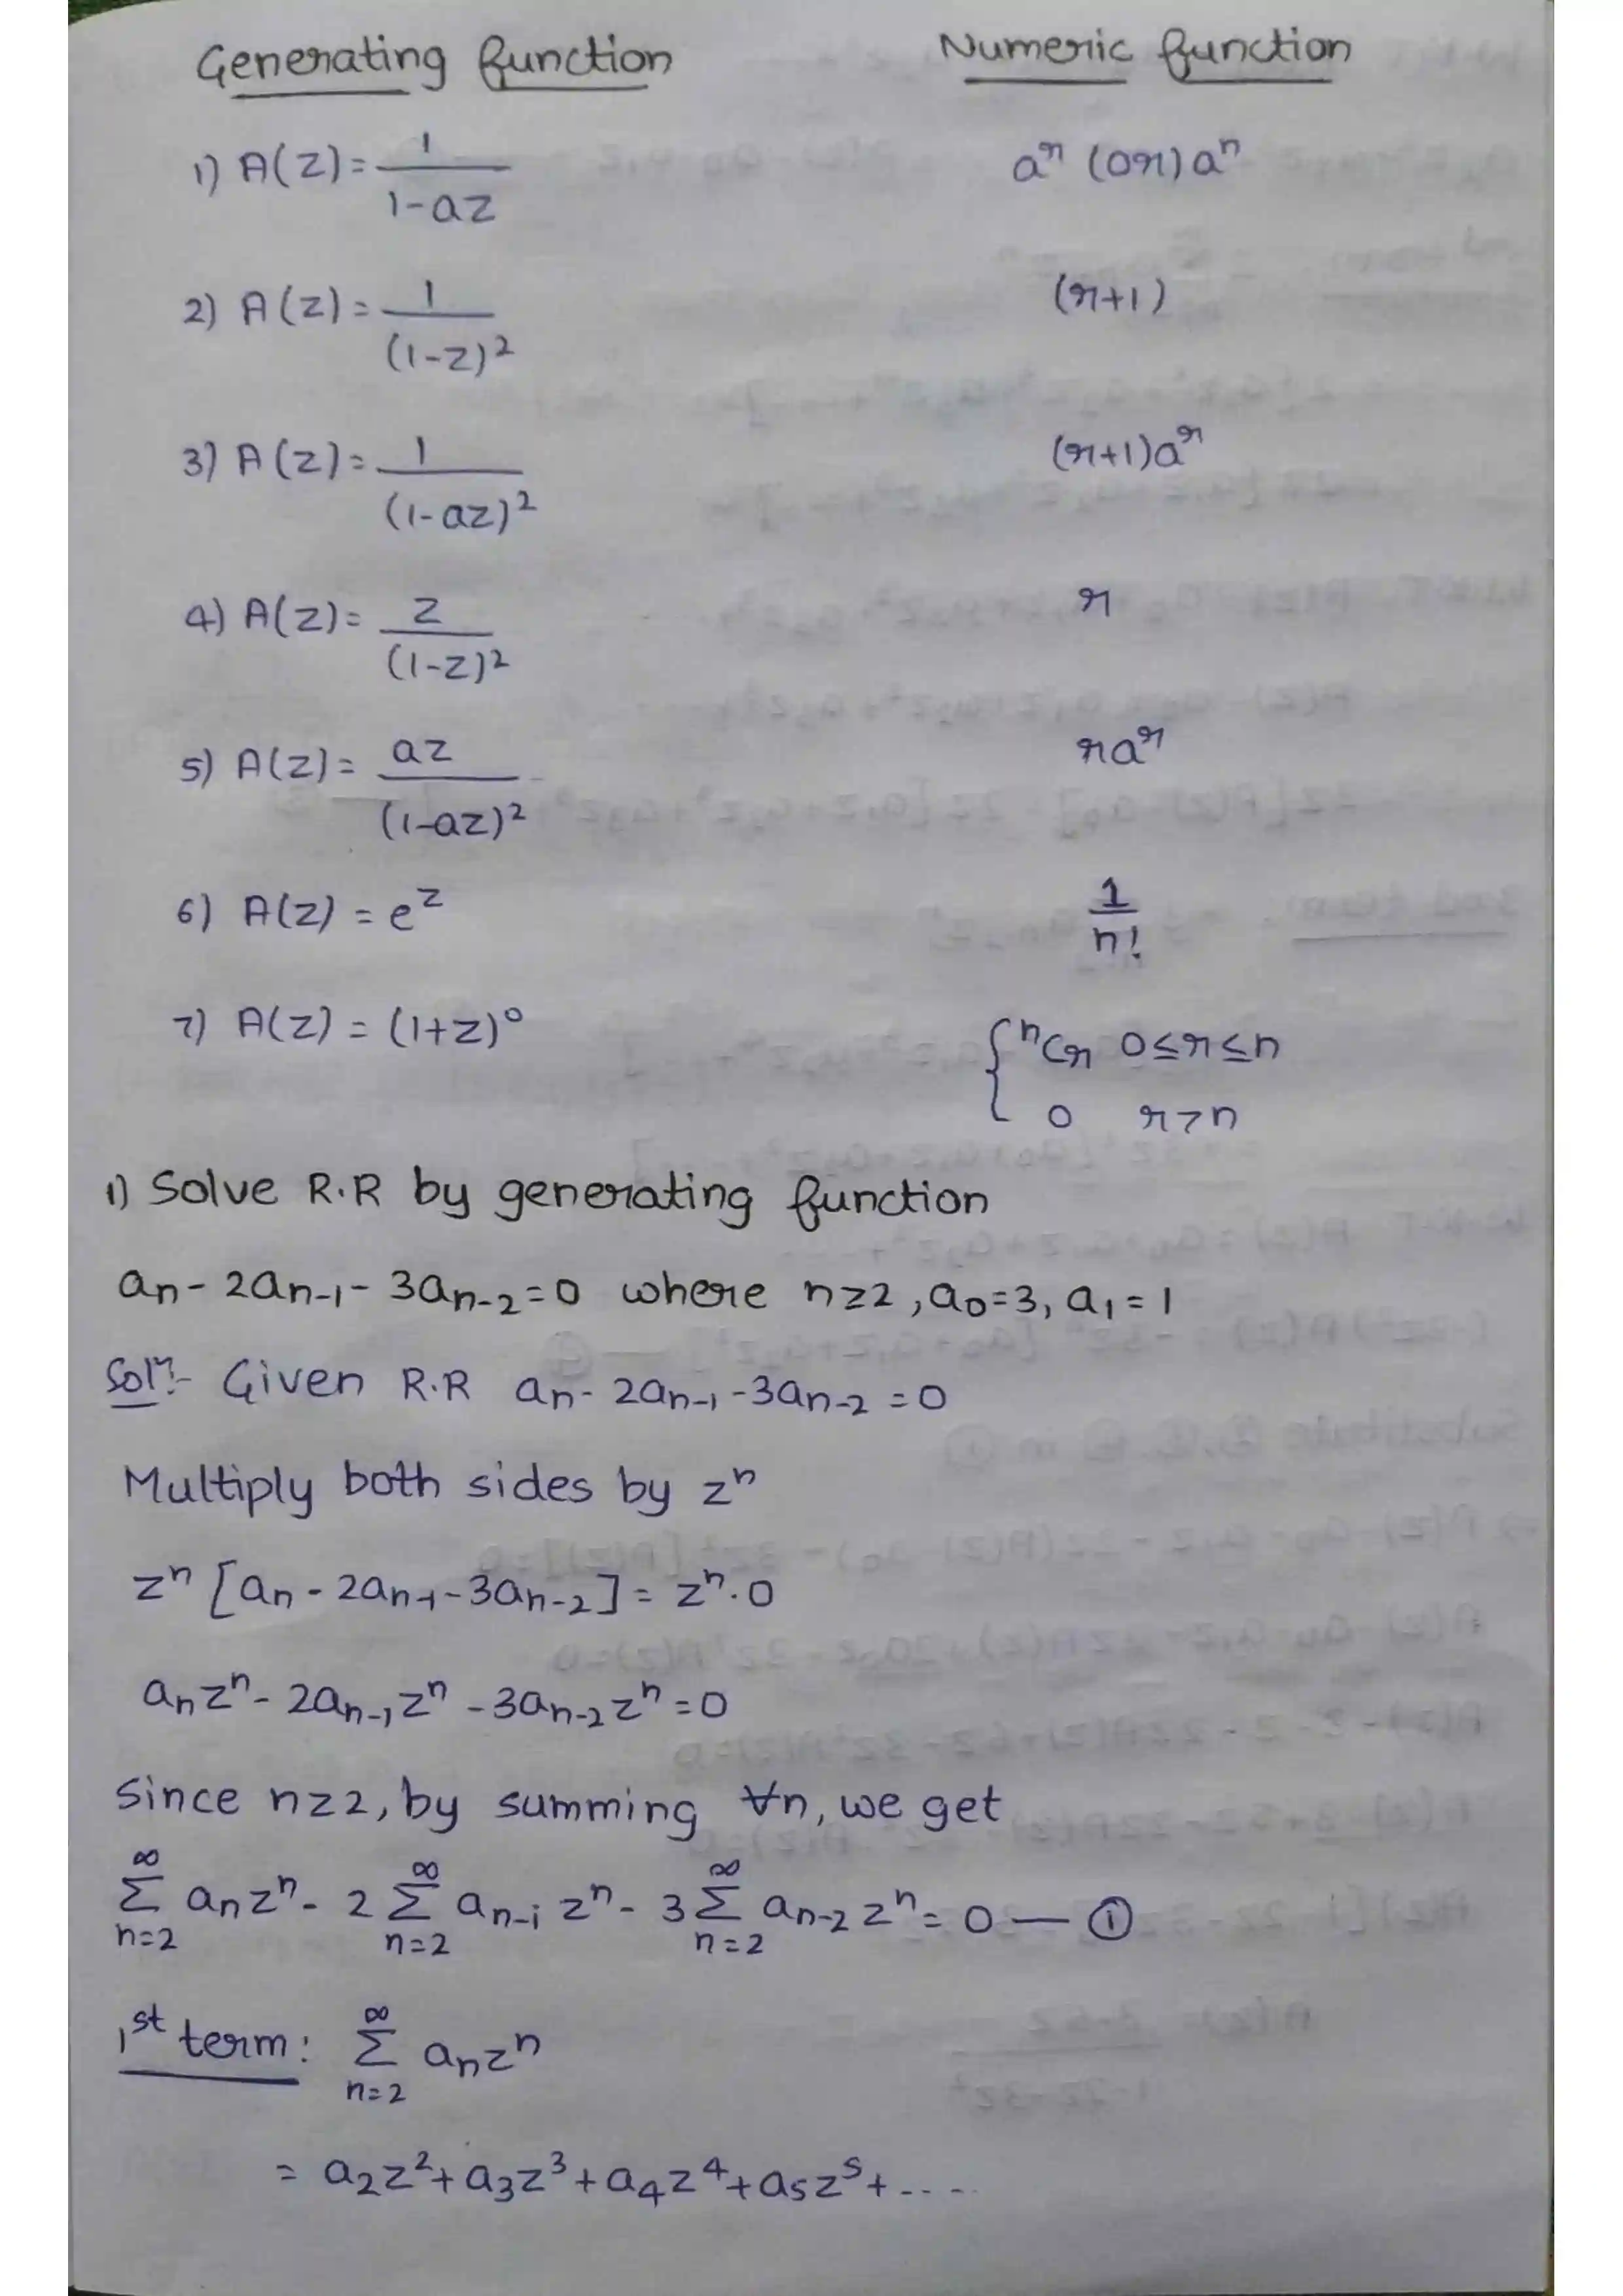 Generating function    Numeric function
1) A(z) = 1/(1-az)    a^r (or) a^n
2) A(z) = 1/(1-z)^2    (r+1)
3) A(z) = 1/(1-az)^2    (r+1)a^r
4) A(z) = z/(1-z)^2    r
5) A(z) = az/(1-az)^2    ra^r
6) A(z) = e^z    1/n!
7) A(z) = (1+z)^0    { nCr 0≤r≤n
0 r>n
1) Solve R.R by generating function
a_n - 2a_{n-1} - 3a_{n-2} = 0 where n≥2, a_0=3, a_1=1
Soln:- Given R.R a_n - 2a_{n-1} - 3a_{n-2} = 0
Multiply both sides by z^n
z^n [a_n - 2a_{n-1} - 3a_{n-2}] = z^n . 0
a_n z^n - 2a_{n-1} z^n - 3a_{n-2} z^n = 0
Since n≥2, by summing ∀n, we get
∞Σn=2 a_n z^n - 2 ∞Σn=2 a_{n-1} z^n - 3 ∞Σn=2 a_{n-2} z^n = 0 — ①
1st term: ∞Σn=2 a_n z^n
= a_2z^2 + a_3z^3 + a_4z^4 + a_5z^5 + .....